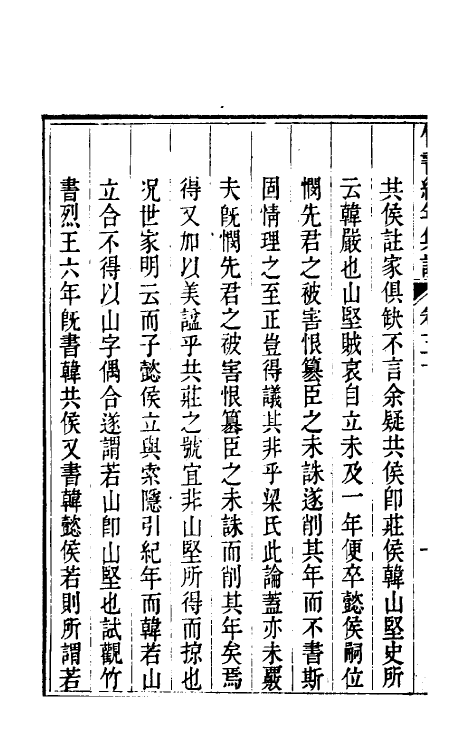 共侯註家俱缺不言余疑共侯卽莊侯韓山堅史所
云韓嚴也山堅賊哀自立未及一年便卒懿侯嗣位
憫先君之被害恨篡臣之未誅遂削其年而不書斯
固情理之至正豈得議其非乎梁氏此論蓋亦未覈
夫旣憫先君之被害恨篡臣之未誅而削其年矣焉
得又加以美諡乎共莊之號宜非山堅所得而掠也
况世家明云而子懿侯立與索隱引紀年而韓若山
立合不得以山字偶合遂謂若山卽山堅也試觀竹
書烈王六年旣書韓共侯又書韓懿侯若則所謂若